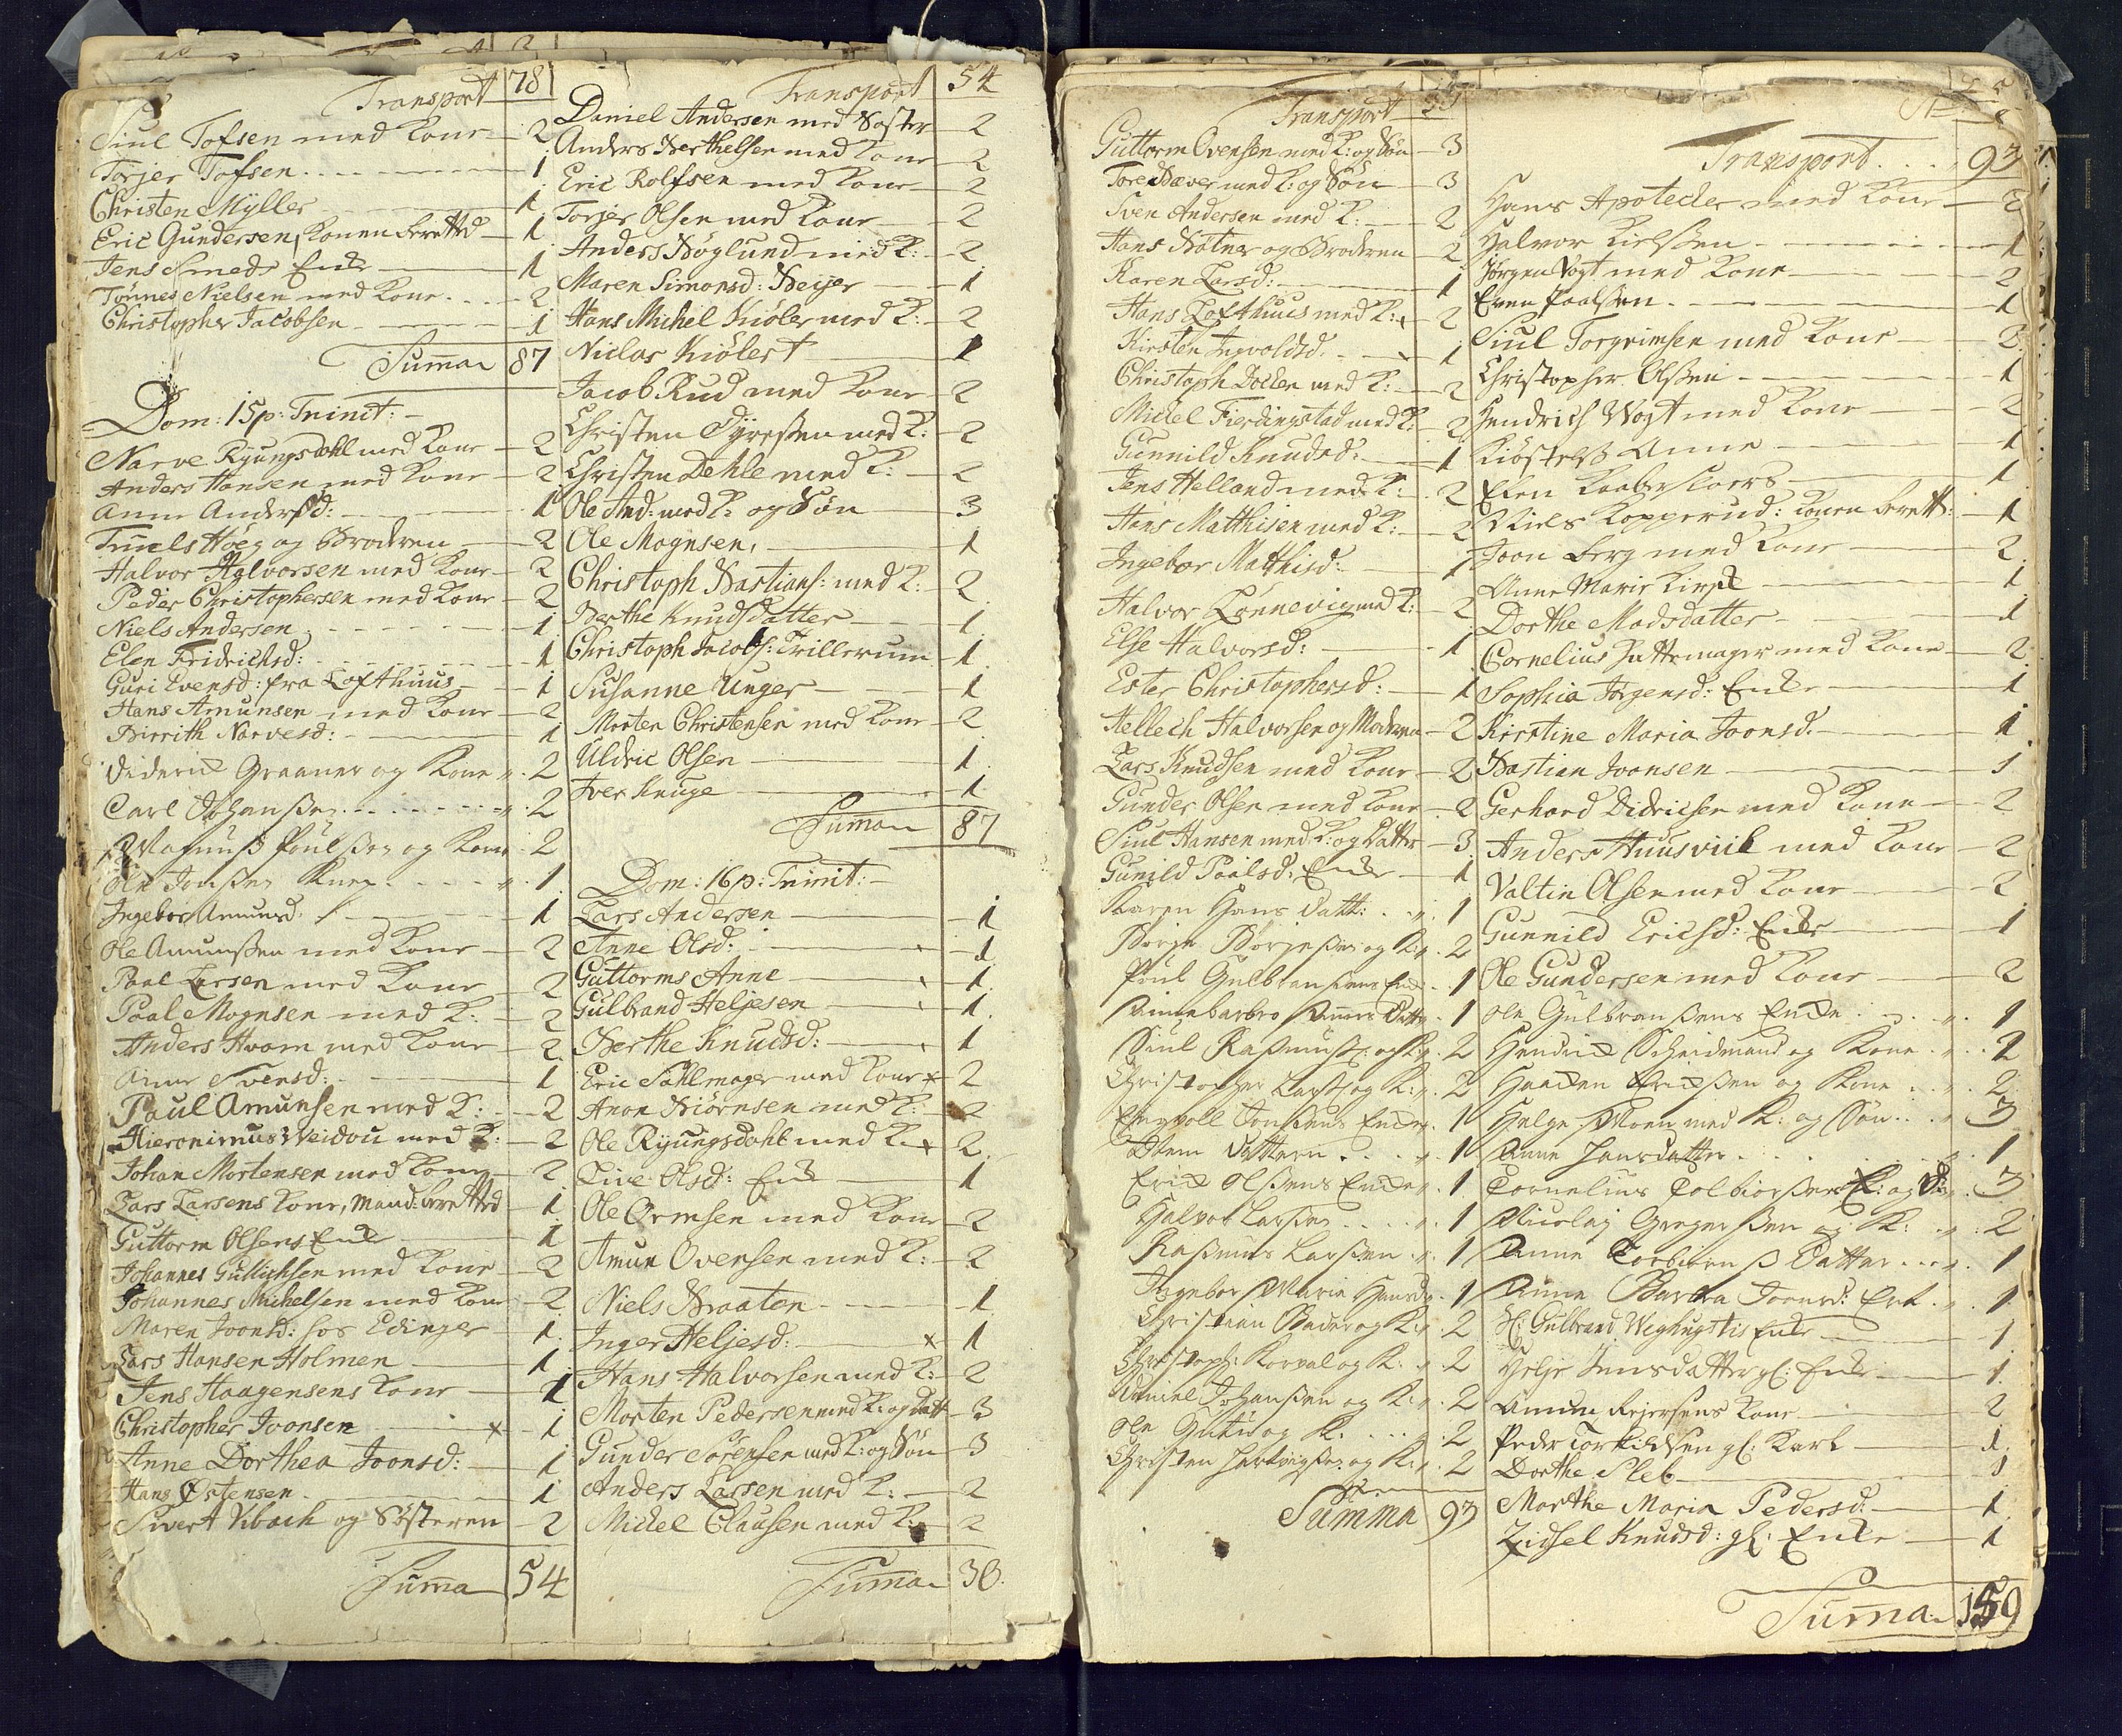 Transport 78
Siul Tofsen med Kone 2
Torjer Tofsen 1
Christen Myller 1
Eric Gundersen, Konen berettd 1
Jens Smeds Enke 1
Tönnes Nielsen med Kone 2
Christopher Jacobsen 1
Summa 87
Dom: 15 p: Trinit:
Narve Ryungsdahl med Kone 2
Anders Hansen med Kone 2
Anne Andersd: 1
Truels Höeg og Broderen 2
Halvor Halvorsen med Kone 2
Peder Christophersen med Kone 2
Niels Andersen 1
Elen Fridrichsd: 1
Guri Evensd: fra Lofthuus 1
Hans Amunsen med Kone 2
Birrith Narvesd: 1
Diderick Graaner og Kone 2
Carl Johanßen 2
Magnuß Poulßen og Kone 2
Ole Jonßen 1
Ingebor Amunsd. 1
Ole Amunßen med Kone 2
Paal Larsen med Kone 2
Paal Mognsen med K: 2
Anders Hvam med Kone 2
Anne Svensd: 1
Paul Amunsen med K: 2
Hieronimus Weidou med K: 2
Johan Mortensen med Kone 2
Lars Larsens Kone, Mand: berettd 1
Guttorm Olsens Enke 1
Johannes Gullichsen med Kone 2
Johannes Michelsen med Kone 2
Maren Joonsd: hos Edinger 1
Lars Hansen Holmen 1
Jens Haagensens Kone 1
Christopher Joonsen 1
Anne Dorthea Joonsd: 1
Hans Østensen 1
Sivert Vibach og Søsteren 2
Summa 54
Transport 54
Daniel Andersen med Søster 2
Anders Berthelsen med Kone 2
Eric Rolfsen med Kone 2
Torjer Olsen med Kone 2
Anders Böglund med K: 2
Maren Simonsd: Beijer 1
Hans Michel Kiöler med K: 2
Niclas Kiölert 1
Jacob Rud med Kone 2
Christen Dyreßen med K: 2
Christen Dehle med K: 2
Ole And: med K: og Sön 3
Ole Mognsen, 1
Christoph Bastians: med K: 2
Berthe Knudsdatter 1
Christoph Jacobs: Trillerum 1
Susanne Unger 1
Morten Christensen med Kone 2
Uldric Olsen 1
Iver Kruge 1
Summa 87
Dom: 16 p: Trinit:
Lars Andersen 1
Anne Olsd: 1
Guttorms Anne 1
Gulbrand Heljesen 1
Berthe Knudsd: 1
Eric Sahlmager med Kone 2
Aron Biörnsen med K: 2
Ole Ryungsdahl med K: 2
Live Olsd: Enke 1
Ole Ormsen med Kone 2
Amun Ovensen med K: 2
Niels Braaten 1
Inger Heljesd: 1
Hans Halvorsen med K: 2
Morten Pedersen med K: og Datt 3
Gunder Sörensen med K: og Sön 3
Anders Larsen med K: 2
Michel Clausen med K: 2
Summa 30.
Transport
Guttorm Ovensen med K: og Sön 3
Tore Bæver med K: og Sön 3
Sven Andersen med K: 2
Hans Bötner og Broderen 2
Karen Larsd: 1
Hans Lofthuus med K: 2
Kirsten Ingvoldsd. 1
Christoph Docker med K: 2
Michel Fierdingstad med K: 2
Gunnild Knudsd: 1
Jens Helland med K: 2
Hans Matthisen med K: 2
Ingebor Matthisd: 1
Halvor Lönnevig med K: 2
Else Halvorsd: 1
Ester Christophersd: 1
Hellech Halvorsen og Moderen 2
Lars Knudsen med Kone 2
Gunder Olsen med Kone 2
Siul Hansen med K: og Datter 3
Gunild Paalsd: Enke 1
Karen Hans Datt: 1
Börje Börjeßen og K: 2
Poul Gulbrandsens Enke 1
Anne Barbro Datter 1
Siul Raßmus: og K: 2
Christopher Larß: og K: 2
Engvoll Jonßens Enke 1
Item Datteren 1
Erick Olßens Enke 1
Halvor Larßen 1
Raßmus Larßen 1
Ingebor Maria Hansd 1
Christian Bader og K: 2
Christoph: Korval og K: 2
Daniel Johanßen og K: 2
Ole og K. 2
Christen Hartvigßen og K: 2
Summa 93
Transport 93
Hans Apotecker med Kone 2
Halvor Kielßen 1
Jörgen Vogt med Kone 2
Even Paalsen 1
Siul Torgrimsen med Kone 2
Christopher Olßen 1
Hendrich Vogt med Kone 2
Kiösterß Anne 1
Elen Kaabersloers 1
Niels Kopperud: Konen berett: 1
Joen Berg med Kone 2
Anne Marie Kirse 1
Dorthe Madsdatter 1
Cornelius Hattemager med Kone 2
Sophia Jörgensd: Enke 1
Kirstine Maria Joonsd. 1
Bastian Joonsen 1
Gerhard Didricsen med Kone 2
Anders Huusviil med Kone 2
Valtin Olsen med Kone 2
Gunnild Ericsd: Enke 1
Ole Gundersen med Kone 2
Ole Gulbranßens Encke 1
Hendrick Schridmand og Kone 2
Haacken Erickßen og Kone 2
Helge Moen med K: og Sön 3
Anne Hansdatter 1
Cornelius Colbiorßen K: og D: 3
Nicolaj Gregerßen og K: 2
Anne Torbiornß Datter 1
Anne Barbra Joensd: Enk 1
Sl: Gulbrand Weghugstis Enke 1
Helje Jensdatter gl: Enke 1
Amun Rejersens Kone 2
Peder Torkildsen gl: Karl 1
Dorthe Sleb 1
Marthe Maria Pedersd. 1
Zidsel Knudsd: gl: Enke 1
Summa 159